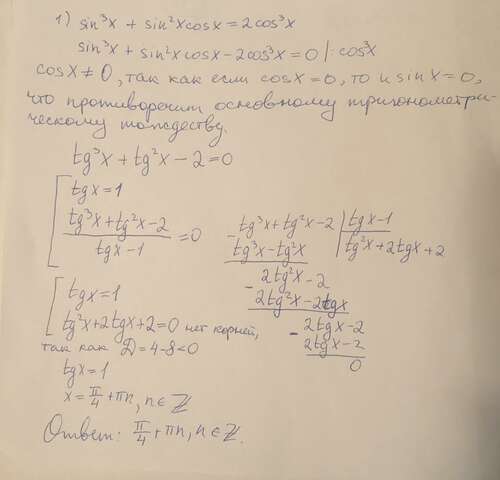 1) sin³x + sin²x cosx = 2cos³x
sin³x + sin²x cosx - 2cos³x = 0 |: cos³x
cosx ≠ 0, так как если cosx = 0, то и sinx = 0,
что противоречит основному тригонометри-
ческому тождеству.
tg³x + tg²x - 2 = 0
[ tgx = 1
(tg³x + tg²x - 2)/(tgx - 1) = 0
- tg³x + tg²x - 2 | tgx - 1
tg³x - tg²x | tg²x + 2tgx + 2
- 2tg²x - 2
2tg²x - 2tgx
- 2tgx - 2
2tgx - 2
0
[ tgx = 1
tg²x + 2tgx + 2 = 0 нет корней,
так как D = 4 - 8 < 0
tgx = 1
x = π/4 + πn, n ∈ ℤ
Ответ: π/4 + πn, n ∈ ℤ.